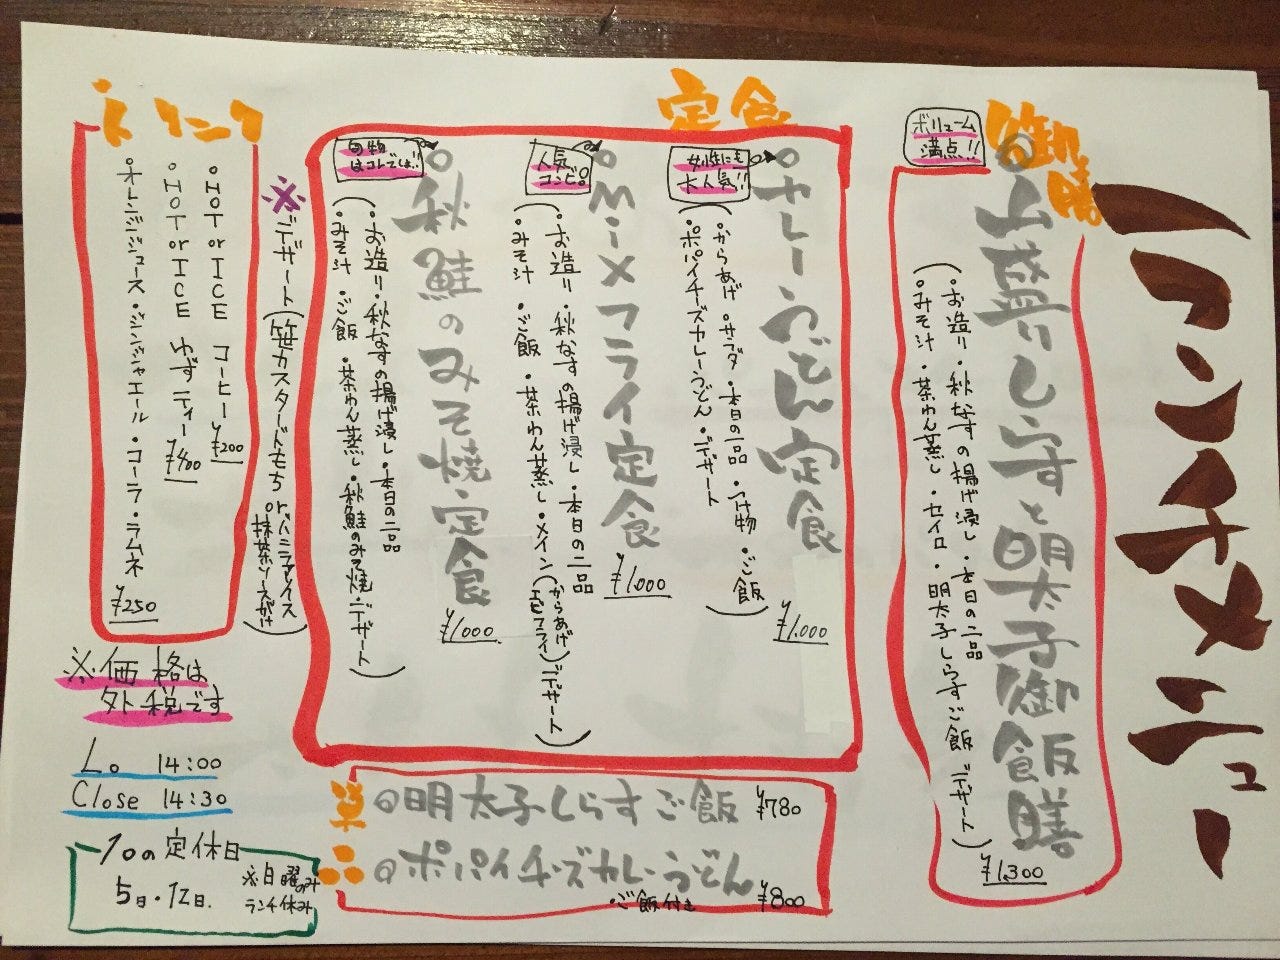 ランチメニュー
御膳
ボリューム
満点!!
山盛りしらすと明太子御飯膳
(・お造り・秋なすの揚げ浸し・本日の二品
・みそ汁・茶わん蒸し・セイロ・明太子しらすご飯 デザート)
¥1,300
定食
女性にも
大人気!!
カレーうどん定食
(からあげ・サラダ・本日の二品・つけ物・ご飯
・ポパイチーズカレーうどん・デザート)
¥1,000
人気
コンビ。
Mixフライ定食
(・お造り・秋なすの揚げ浸し・本日の二品
・みそ汁・ご飯・茶わん蒸し・メイン(からあげ
エビフライ)デザート)
¥1,000
旬物
はコレでしょ!!
秋鮭のみそ焼定食
(・お造り・秋なすの揚げ浸し・本日の二品
・みそ汁・ご飯・茶わん蒸し・秋鮭のみそ焼・デザート)
¥1,000
※デザート(笹カスタードもち or バニラアイス
抹茶ソースがけ)
ドリンク
HOT or ICE コーヒー ¥200
HOT or ICE ゆずティー ¥400
オレンジジュース・ジンジャエール・コーラ・ラムネ
¥250
単品
明太子しらすご飯 ¥780
ポパイチーズカレーうどん
・ご飯付き ¥800
※価格は
外税です
L。 14:00
Close 14:30
10の定休日
5日・12日.
※日曜のみ
ランチ休み